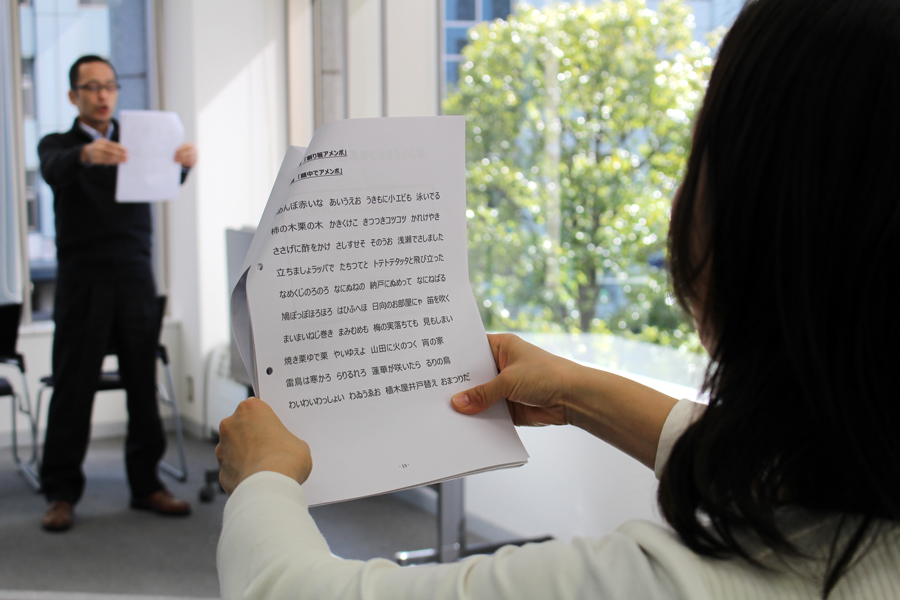 「割り箸アメンボ」
「腹中でアメンボ」
めんぼ赤いな あいうえお うきもに小エビも 泳いでる
柿の木栗の木 かきくけこ きつつきコツコツ かれけやき
ささげに酢をかけ さしすせそ そのうお 浅瀬でさしました
立ちましょラッパで たちつてと トテトテタッタと飛び立った
なめくじのろのろ なにぬねの 納戸にぬめって なにねばる
鳩ぽっぽほろほろ はひふへほ 日向のお部屋にゃ 笛を吹く
まいまいねじ巻き まみむめも 梅の実落ちても 見もしまい
焼き栗ゆで栗 やいゆえよ 山田に火のつく 宵の家
雷鳥は寒かろ らりるれろ 蓮華が咲いたら るりの鳥
わいわいわっしょい わゐうゑお 植木屋井戸替え おまつりだ